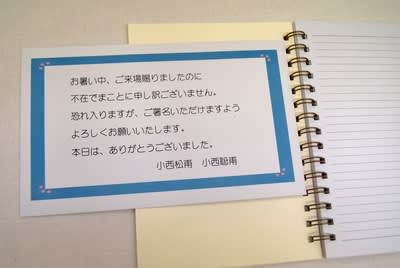 お暑い中、ご来場賜りましたのに
不在でまことに申し訳ございません。
恐れ入りますが、ご署名いただけますよう
よろしくお願いいたします。
本日は、ありがとうございました。
小西松甫　小西聡甫